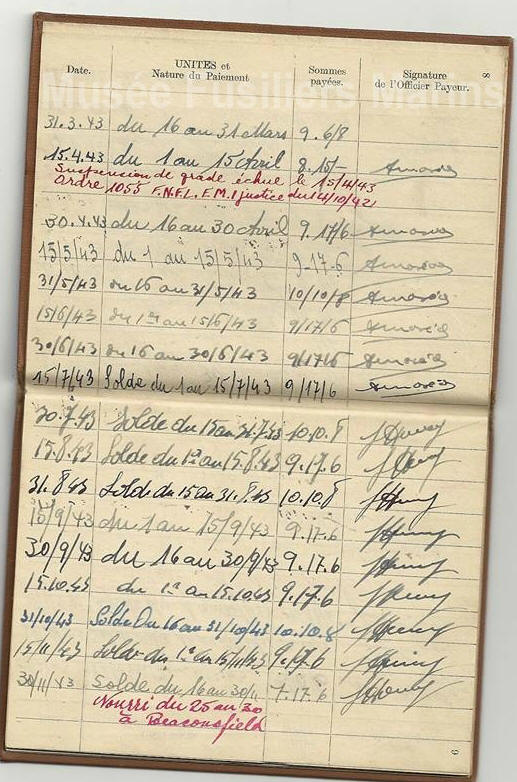 Musée Fusiliers Marins
Date. UNITES et Nature du Paiement Sommes payées. Signature de l'Officier Payeur. 8
31.3.43 du 16 au 31 Mars 9.6/8
15.4.43 du 1 au 15 Avril 8.15/-
Suspension de grade échue le 15/4/43
Ordre 1055 F.N.F.L. E.M. 1 justice du 14/10/42
30.4.43 du 16 au 30 Avril 9.17/6
15/5/43 du 1 au 15/5/43 9-17-6
31/5/43 du 16 au 31/5/43 10/10/8
15/6/43 du 1er au 15/6/43 9/17/6
30/6/43 du 16 au 30/6/43 9/17/6
15/7/43 Solde du 1 au 15/7/43 9/17/6
30.7.43 Solde du 15 au 31.7.43 10.10.8
15.8.43 Solde du 1er au 15.8.43 9.17.6
31.8.43 Solde du 15 au 31.8.43 10.10.8
15/9/43 du 1 au 15/9/43 9.17.6
30/9/43 du 16 au 30/9/43 9.17.6
15.10.43 du 1er au 15.10.43 9.17.6
31/10/43 Solde Du 16 au 31/10/43 10.10.8
15/11/43 Solde du 1er au 15/11/43 9.17.6
30/11/43 Solde du 16 au 30/11 7.17.6
Nourri du 25 au 30
à Beaconsfield
9